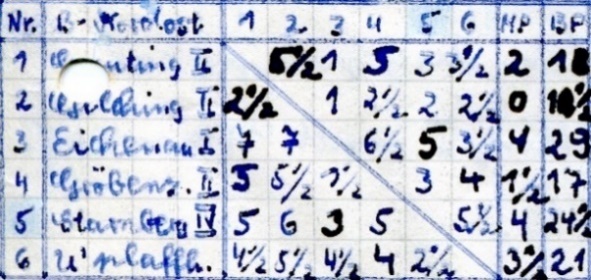 Nr. B-Nordost 1 2 3 4 5 6 MP BP
1 Gauting II 5½ 1 5 3 3½ 2 18
2 Gilching II 2½ 1 2½ 2 2½ 0 10½
3 Eichenau I 7 7 6½ 5 3½ 4 29
4 Gröbenz. II 3 5½ 1½ 3 4 1½ 17
5 Starnberg IV 5 6 3 5 5½ 4 24½
6 U'pfaffh. 4½ 5½ 4½ 4 2½ 3½ 21